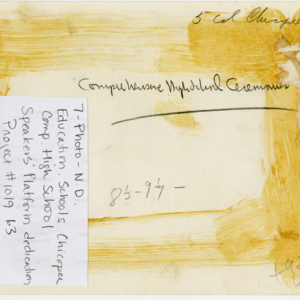 5 col Chicopee
Comprehensive High School Ceremonies
7-Photo-N.D.
Education. Schools. Chicopee
Comp High School
Speakers Platform dedication
Project #1019 63